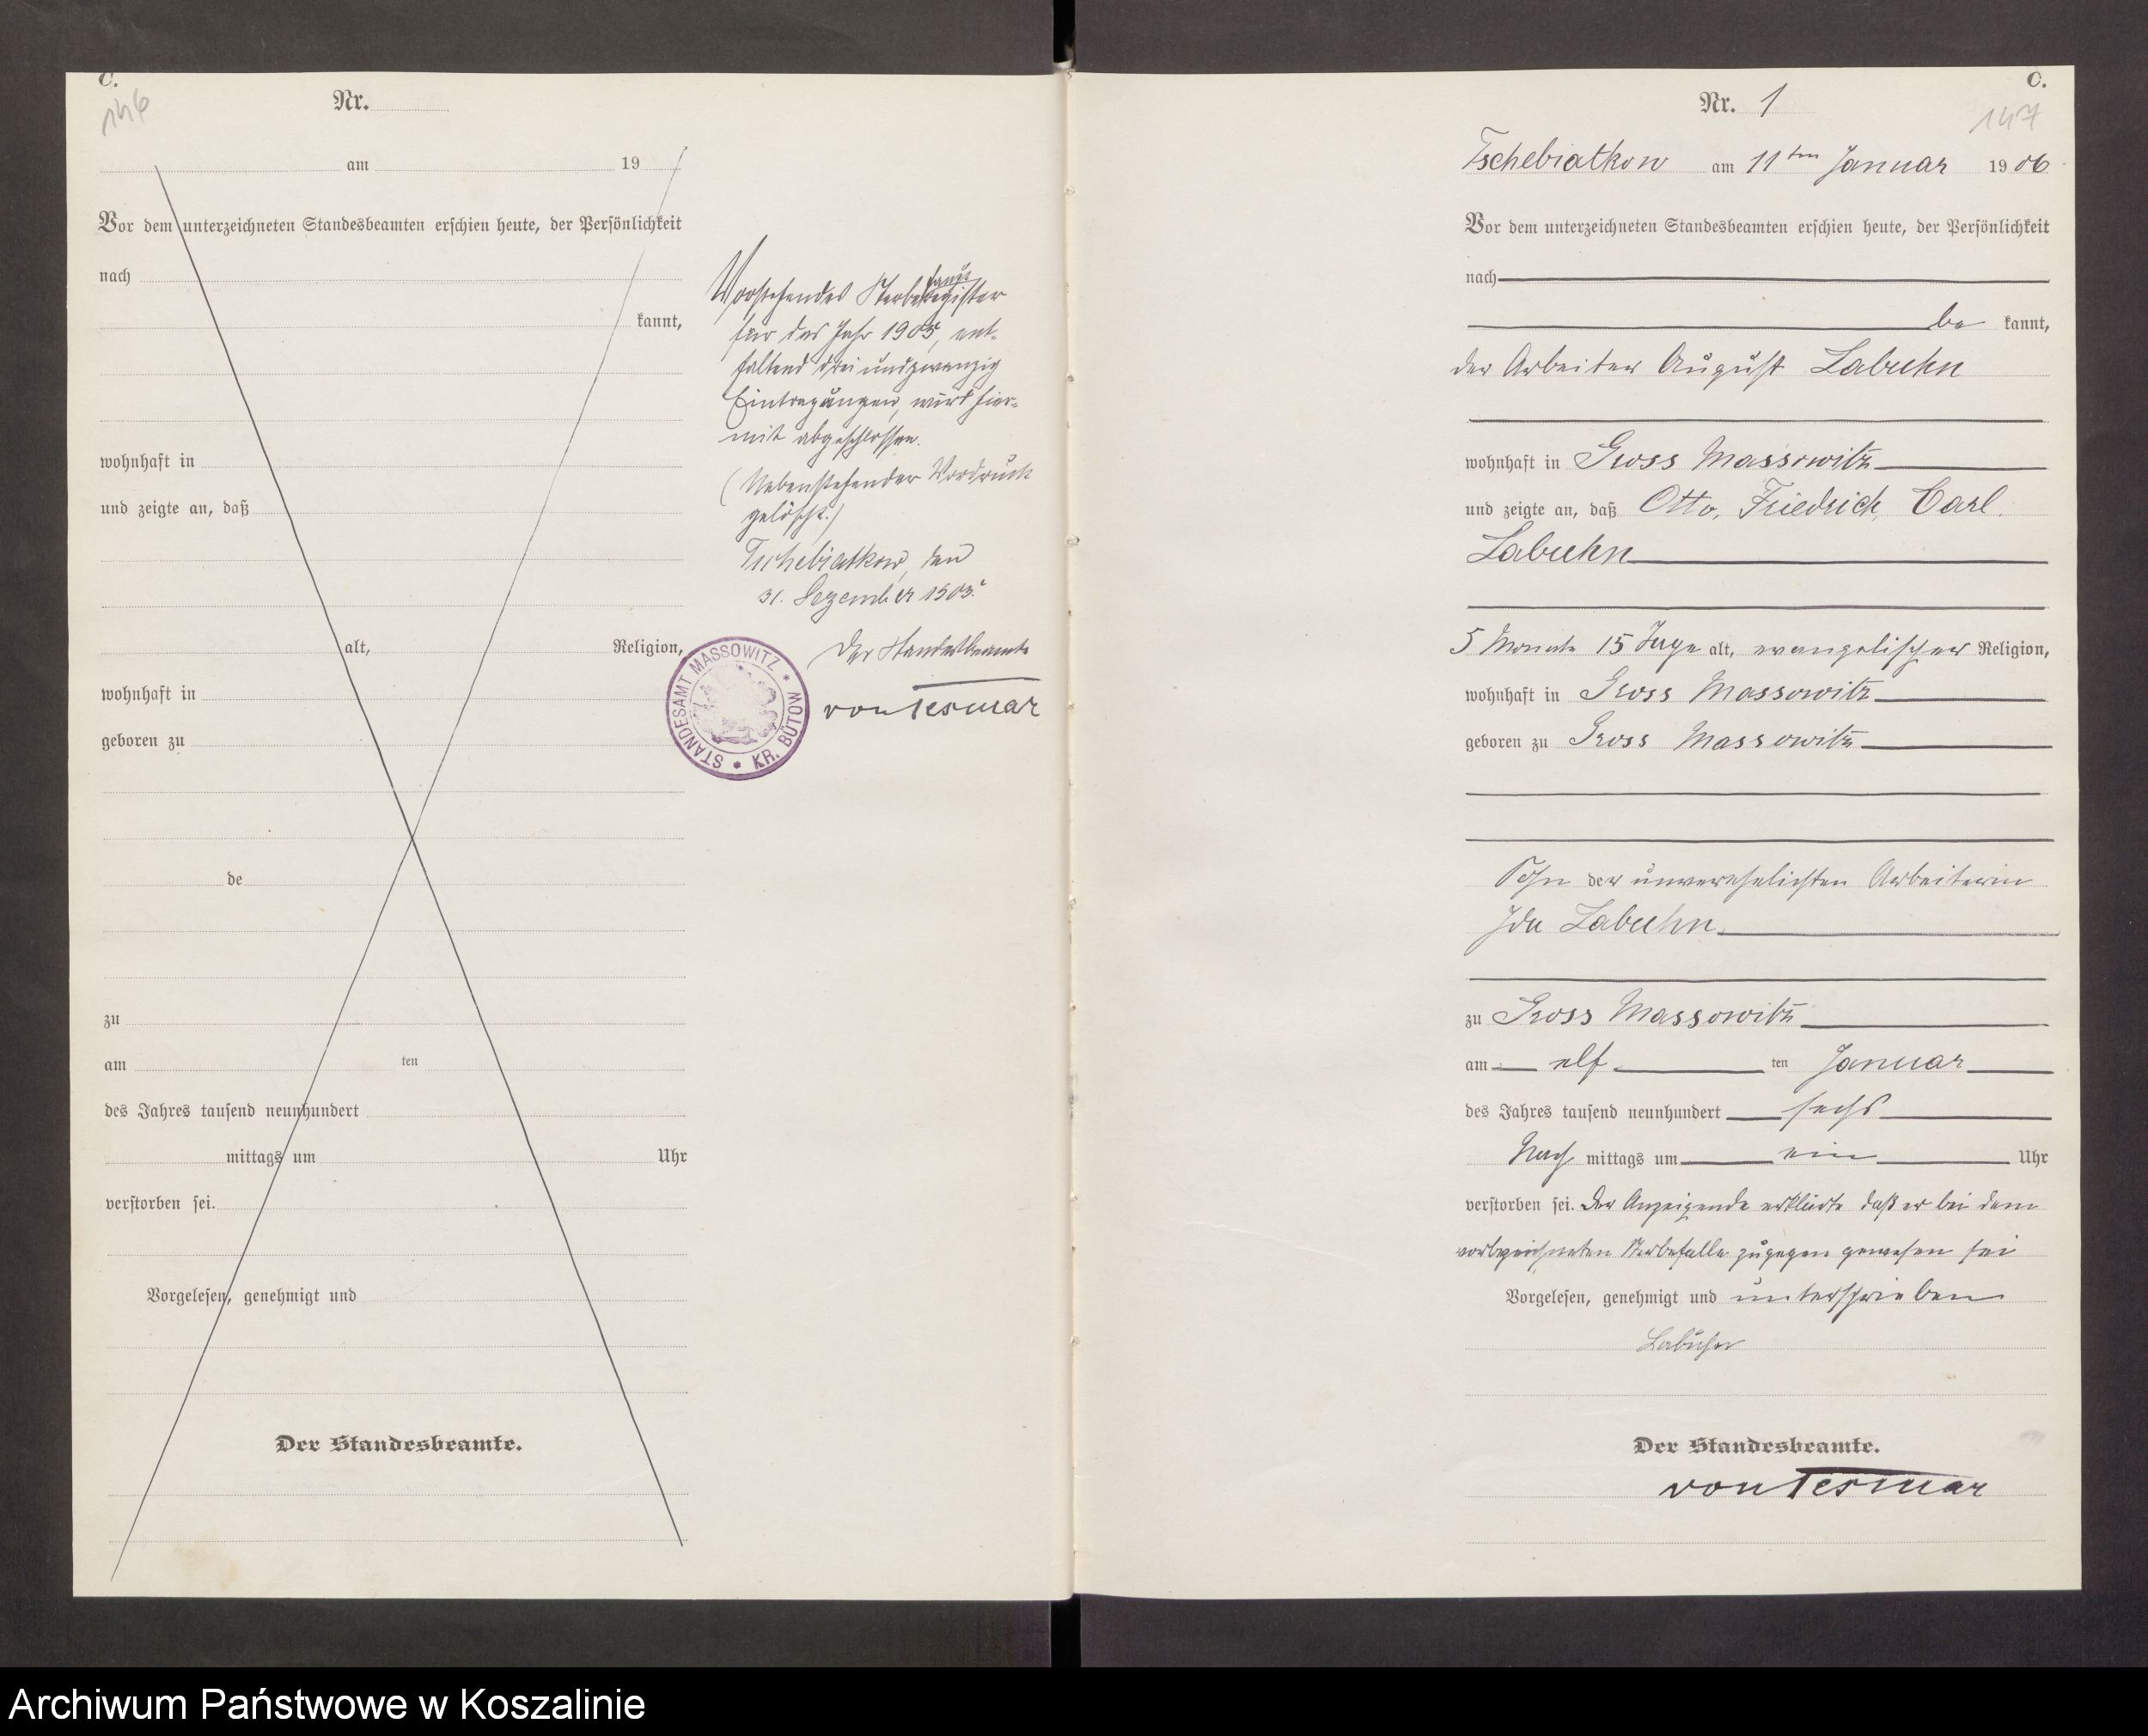 C.
146
Nr.
am 19
Vor dem unterzeichneten Standesbeamten erschien heute, der Persönlichkeit
nach
kannt,
wohnhaft in
und zeigte an, daß
alt, Religion,
wohnhaft in
geboren zu
de
zu
am ten
des Jahres tausend neunhundert
mittags um Uhr
verstorben sei.
Vorgelesen, genehmigt und
Der Standesbeamte.
Vorstehendes Sterbe haupt register
für das Jahr 1905, ent-
haltend drei und zwanzig
Eintragungen, wird hier-
mit abgeschlossen.
(Nebenstehender Vordruck
gelöscht.)
Tschebiatkow, den
31. Dezember 1905.
Der Standesbeamte
von Tesmar
STANDESAMT MASSOWITZ * KR. BÜTOW *
C.
147
Nr. 1
Tschebiatkow am 11ten Januar 1906
Vor dem unterzeichneten Standesbeamten erschien heute, der Persönlichkeit
nach
be kannt,
der Arbeiter August Labuhn
wohnhaft in Gross Massowitz
und zeigte an, daß Otto, Friedrich, Carl.
Labuhn
5 Monate 15 Tage alt, evangelischer Religion,
wohnhaft in Gross Massowitz
geboren zu Gross Massowitz
Sohn der unverehelichten Arbeiterin
Ida Labuhn
zu Gross Massowitz
am elf ten Januar
des Jahres tausend neunhundert sechs
Nach mittags um ein Uhr
verstorben sei. Der Anzeigende erklärte daß er bei dem
vorbezeichneten Sterbefalle zugegen gewesen sei
Vorgelesen, genehmigt und unterschrieben
Labuhn
Der Standesbeamte.
von Tesmar
Archiwum Państwowe w Koszalinie